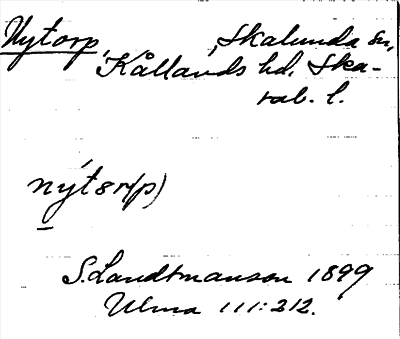 Nytorp, Skalunda sn,
Kållands hd. Ska-
rab. l.
nýt8r(p)
S. Landtmanson 1899
Ulma 111:212.